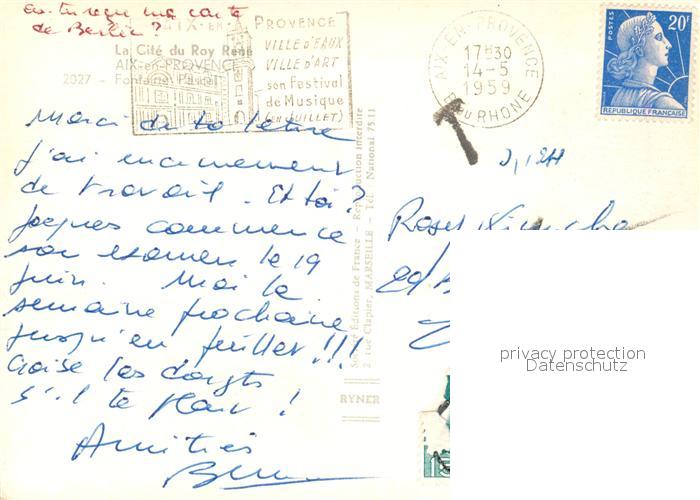 as-tu reçu ma carte
de Berlin ?
La Cité du Roy René
AIX-en-PROVENCE
2027 - Fontaine Pascal
AIX-EN-PROVENCE
VILLE D'EAUX
VILLE D'ART
son Festival
de Musique
(EN JUILLET)
AIX-EN-PROVENCE
17H30
14-5
1959
B. DU RHONE
POSTES
20F
REPUBLIQUE FRANÇAISE
T
Merci de ta lettre
j'ai énormément
de travail. Et toi ?
Jacques commence
son examen le 19
juin. Moi la
semaine prochaine
jusqu'en juillet !!!
Croise les doigts
s'il te plaît !
Amitiés
Editions de France - Reproduction interdite
2, rue Clapier, MARSEILLE - Tél. National 75-11
RYNER
privacy protection
Datenschutz